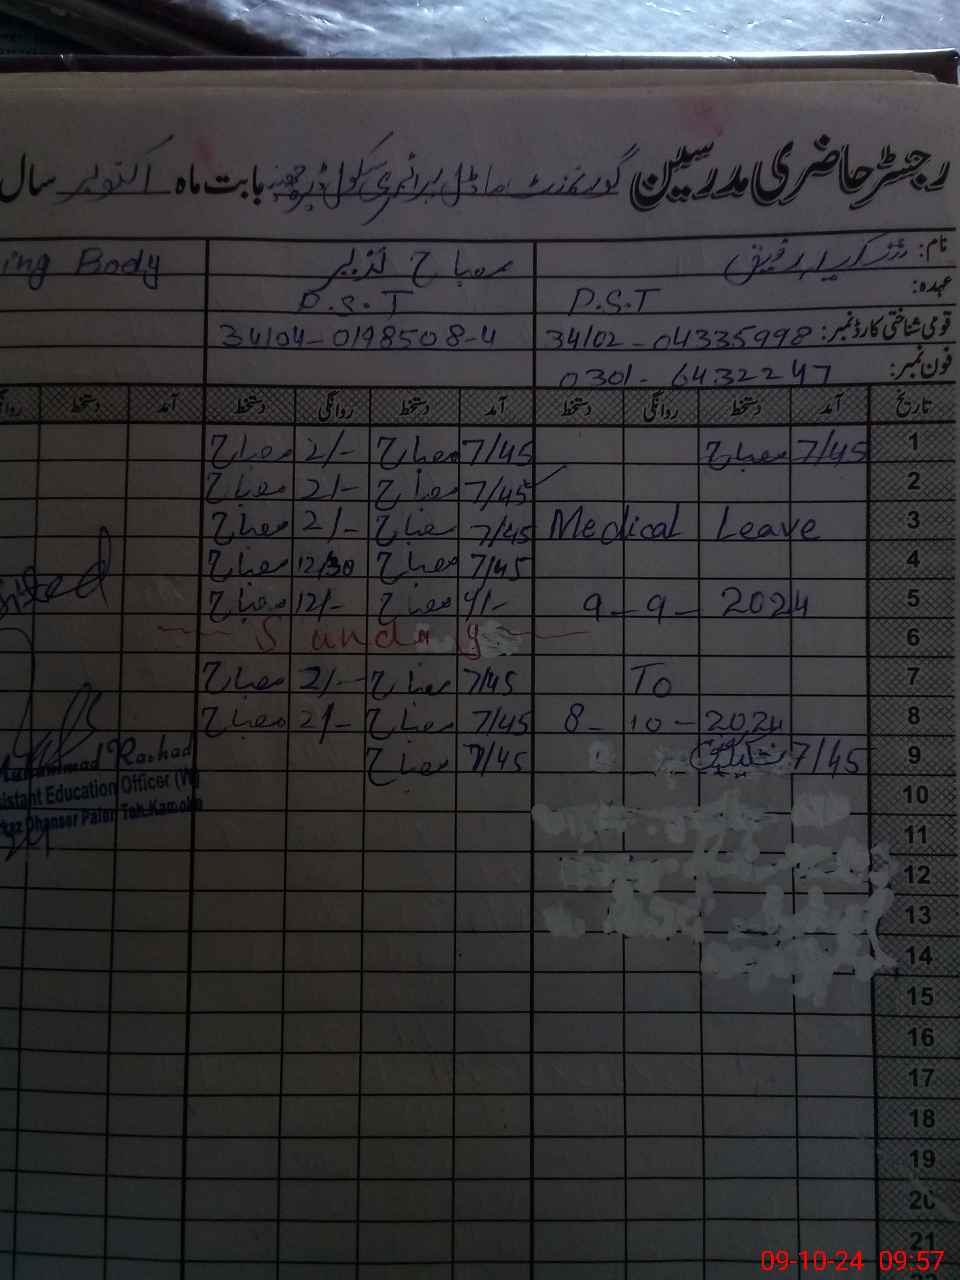 رجسٹر حاضری مدرسین گورنمنٹ ماڈل پرائمری سکول بابت ماہ اکتوبر سال
نام: رفیق مصباح نذیر ing Body
عہدہ: P.S.T P.S.T
قومی شناختی کارڈ نمبر: 34102-04335998 34104-0198508-4
فون نمبر: 0301-6432247
تاریخ آمد دستخط روانگی دستخط آمد دستخط روانگی دستخط آمد دستخط
1 7/45 مصباح 7/45 مصباح 2/- مصباح
2 7/45 مصباح 2/- مصباح
3 Medical Leave 7/45 مصباح 2/- مصباح
4 7/45 مصباح 12/30 مصباح
5 9-9-2024 مصباح 12/- مصباح
6 Sunday
7 To 7/45 مصباح 2/- مصباح
8 8-10-2024 7/45 مصباح 2/- مصباح
9 7/45 7/45 مصباح
10
11
12
13
14
15
16
17
18
19
20
21
Muhammad Rashad
sistant Education Officer
Teh.Kamoke
09-10-24 09:57